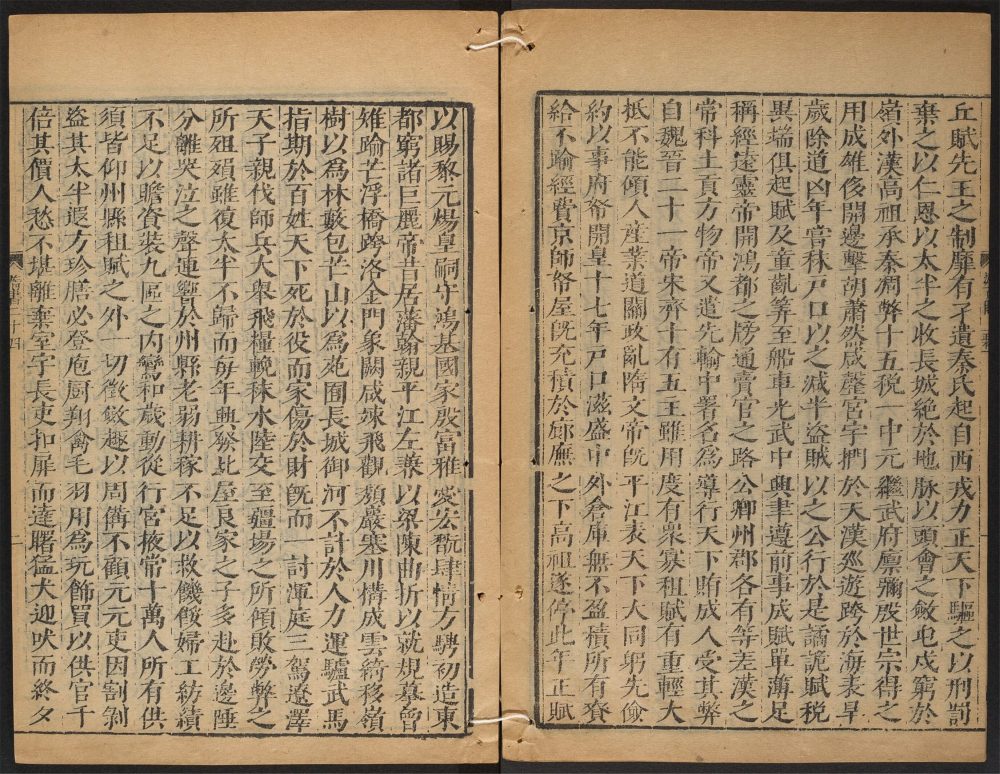 丘賦先王之制靡有孑遺秦氏起自西戎力正天下驅之以刑罰
棄之以仁恩以太半之收長城絶於地脉以頭會之斂屯戍窮於
嶺外漢高祖承秦凋弊十五稅一中元繼武府廩彌殷世宗得之
用成雄侈開邊擊胡蕭然咸罄宮宇捫於天漢巡遊跨於海表旱
歲除道凶年嘗秣戸口以之減半盜賊以之公行於是譎詭賦稅
異端俱起賦及童齓筭至船車光武中興聿遵前事成賦單薄足
稱經遠靈帝開鴻都之牓通賣官之路公卿州郡各有等差漢之
常科土貢方物帝又遣先輸中署名爲導行天下賄成人受其弊
自魏晉二十一帝宋齊十有五主雖用度有衆寡租賦有重輕大
抵不能傾人産業道關政亂隋文帝旣平江表天下大同躬先儉
約以事府帑開皇十七年戸口滋盛中外倉庫無不盈積所有賚
給不踰經費京師帑屋旣充積於廊廡之下高祖遂停此年正賦
以賜黎元煬皇嗣守鴻基國家殷富雅愛宏翫肆情方騁初造東
都窮諸巨麗帝昔居藩翰親平江左兼以梁陳曲折以就規摹曾
雉踰芒浮橋跨洛金門象闕咸竦飛觀頽巖塞川構成雲綺移嶺
樹以爲林藪包芒山以爲苑囿長城御河不計於人力運驢武馬
指期於百姓天下死於役而家傷於財旣而一討渾庭三駕遼澤
天子親伐師兵大舉飛糧輓秣水陸交至疆場之所傾敗勞弊之
所殂殞雖復太半不歸而每年興發比屋良家之子多赴於邊陲
分離哭泣之聲連響於州縣老弱耕稼不足以救饑餒婦工紡績
不足以贍資裝九區之内鸞和歲動從行宮掖常十萬人所有供
須皆仰州縣租賦之外一切徵斂趣以周備不顧元元吏因割剝
盜其太半遐方珍膳必登庖厨翔禽毛羽用爲玩飾買以供官千
倍其價人愁不堪離棄室宇長吏扣扉而達曙猛犬迎吠而終夕